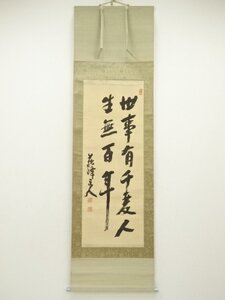 世事有千変人
生無百年